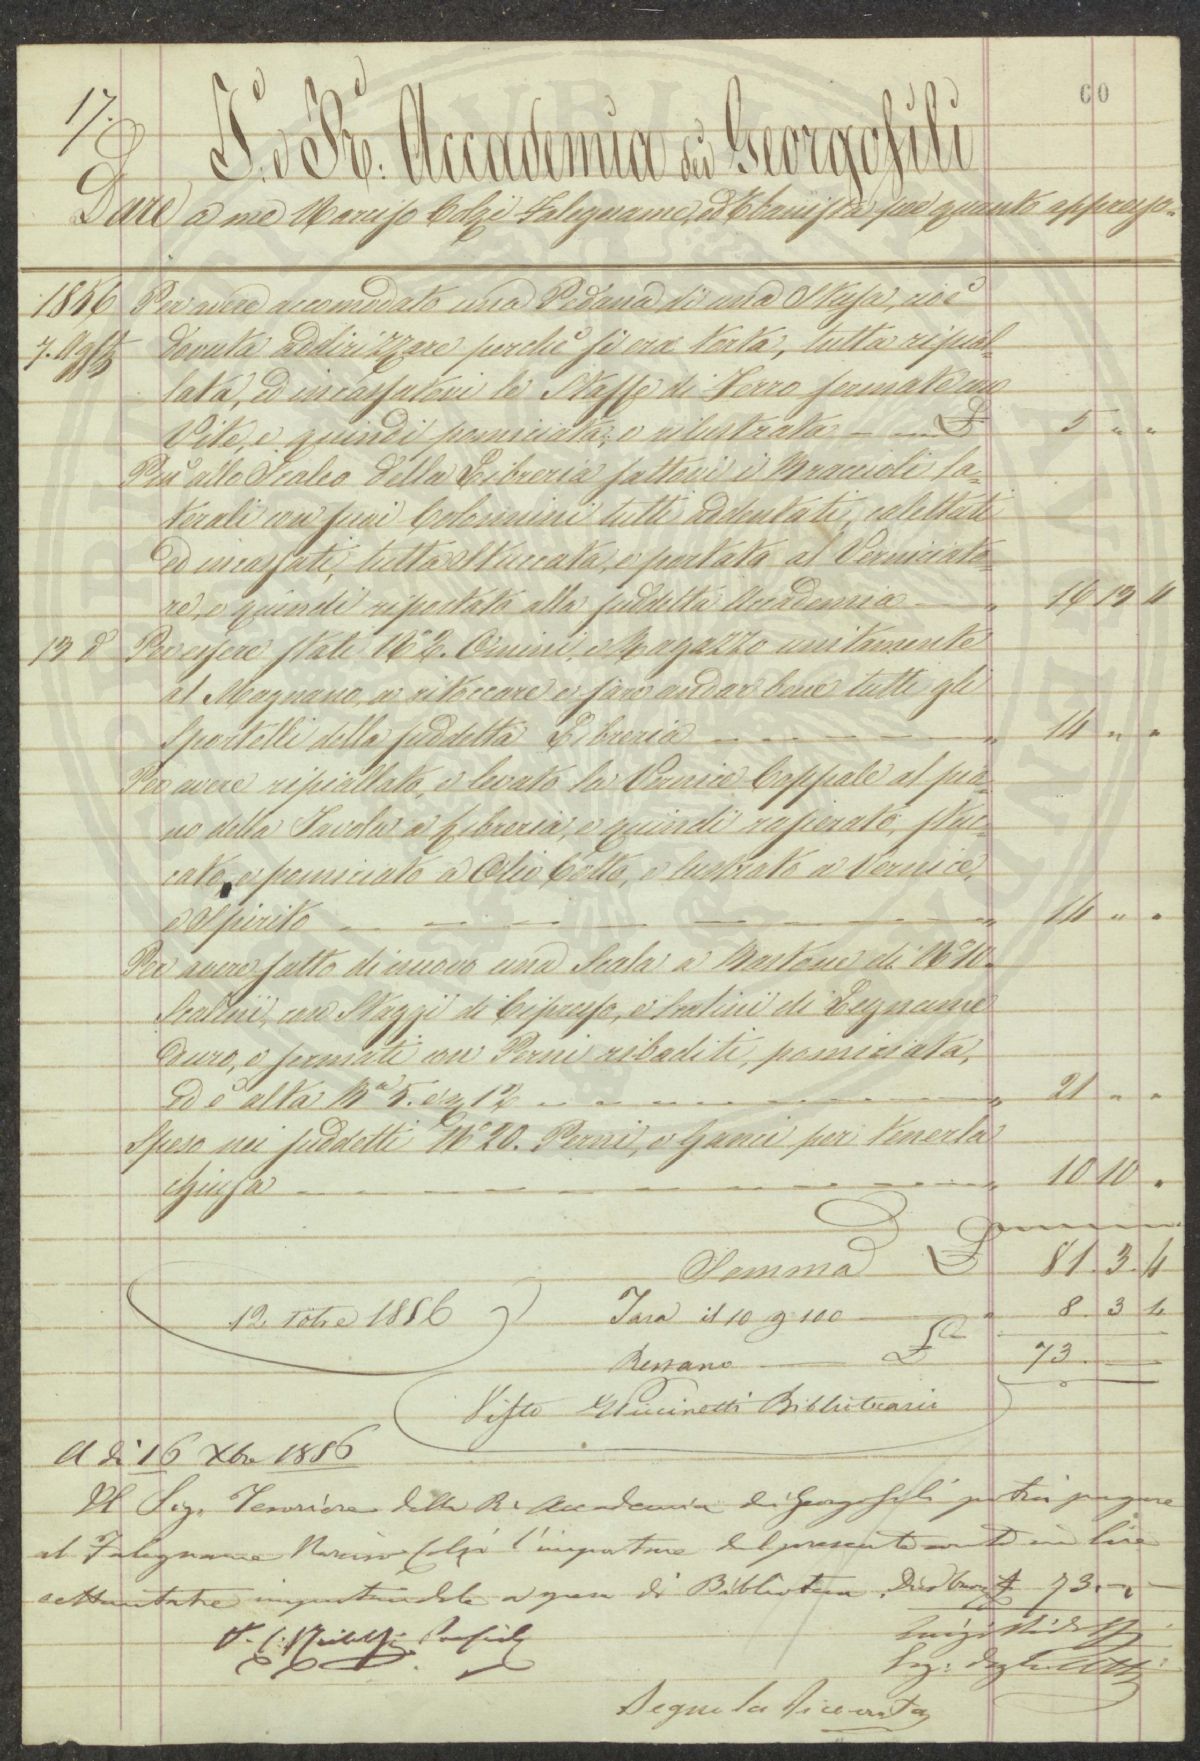 17.
60
I. e R. Accademia dei Georgofili
Dare a me Narciso Colzi Falegname, ed Ebanista per quanto appresso
1856 Per avere accomodato una Pedana di una Stufa, cioè
7. Agto dovuta addirizzare perchè si era torta, tutta ripial-
lata, ed incassatovi le Staffe di Ferro fermate con
Vite, e quindi pomiciata, e rilustrata £ 5 " "
Più allo Scaleo della Libreria fattovi i Braccioli la-
terali con suoi Colonnini tutti addentati, calettati
ed incassati, tutta Stuccata, e portata al Verniciato-
re, e quindi riportata alla suddetta Accademia " 16 13 4
13 d° Per essere stati N° 2. Omini, e Ragazzo unitamente
al Magnano, a ritoccare e fare andar bene tutti gli
Sportelli della suddetta Libreria " 14 " "
Per avere ripiallato, e levato la Vernice Coppale al pia-
no della Tavola a Libreria, e quindi rasierato, stuc-
cato, e pomiciato a Olio Cotto, e lustrato a Vernice,
e Spirito " 14 " "
Per avere fatto di nuovo una Scala a Bastone di N° 10.
Scalini, con Staggi di Cipresso, e Scalini di Legname
duro, e fermati con Perni ribaditi, pomiciata,
ed è alta Ba 5. e 1/2 " 21 " "
Speso nei suddetti N° 20. Perni, e Ganci per tenerla
chiusa " 10 10 "
Somma £ 81. 3. 4
12. 1856 Tara il 10 p 100 " 8 3 4
Restano £ 73
Visto Puccinotti Bibliotecario
A dì 16 Xbre 1856
Il Sig. Tesoriere della R. Accademia dei Georgofili potrà pagare
al Falegname Narciso Colzi l'importare del presente conto in lire
settantatre importandole a spese di Biblioteca. Dico £ 73. -. -
V. C. Ridolfi Presid
Luigi Ridolfi
Seg: degli Atti
Segue la Ricevuta